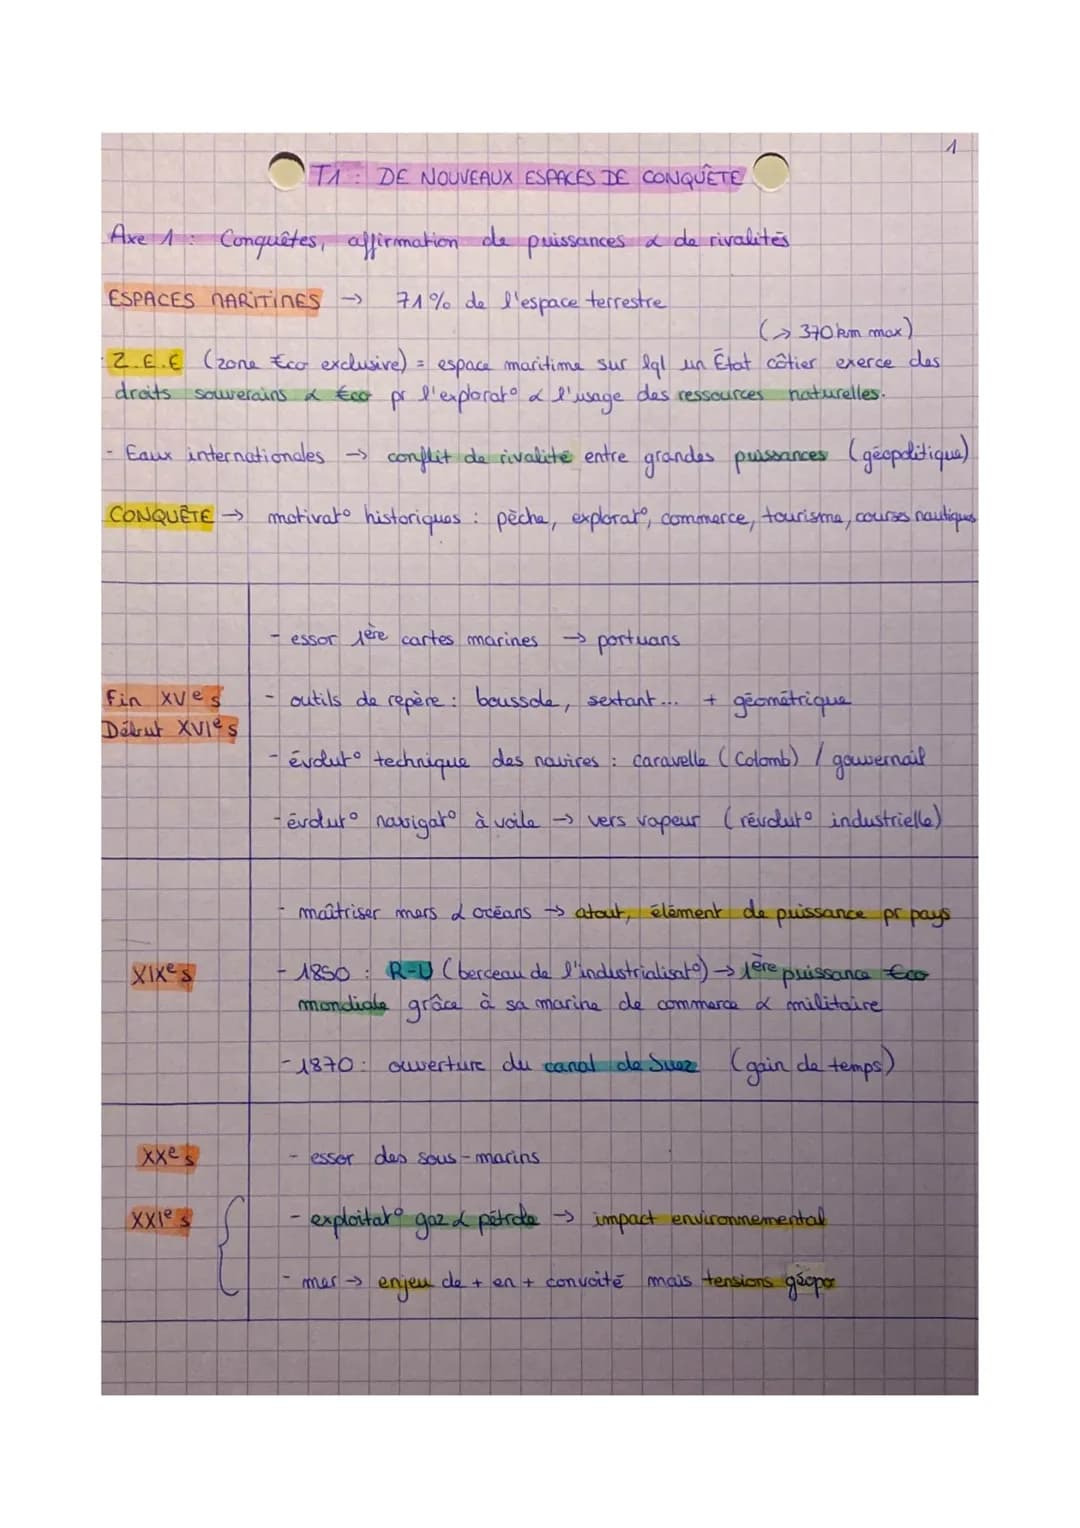 1
T1 : DE NOUVEAUX ESPACES DE CONQUÊTE
Axe 1 : Conquêtes, affirmation de puissances & de rivalités
ESPACES MARITIMES → 71% de l'espace terrestre
(→ 370 km max)
Z.E.E (zone €co exclusive) = espace maritime sur lql un État côtier exerce des
droits souverains & €co pr l'explorat° & l'usage des ressources naturelles.
- Eaux internationales → conflit de rivalité entre grandes puissances (géopolitique)
CONQUÊTE → motivat° historiques : pêche, explorat°, commerce, tourisme, courses nautiques
- essor 1ère cartes marines → portuans
Fin XVe s
Début XVIe s
- outils de repère : boussole, sextant... + géométrique
- évolut° technique des navires : caravelle (Colomb) / gouvernail
- évolut° navigat° à voile → vers vapeur (révolut° industrielle)
- maîtriser mers & océans → atout, élément de puissance pr pays
XIXe s
- 1850 : R-U (berceau de l'industrialisat°) → 1ère puissance €co
mondiale grâce à sa marine de commerce & militaire
- 1870 : ouverture du canal de Suez (gain de temps)
XXe s
- essor des sous-marins
XXIe s
- exploitat° gaz & pétrole → impact environnemental
- mer → enjeu de + en + convoité mais tensions géopo